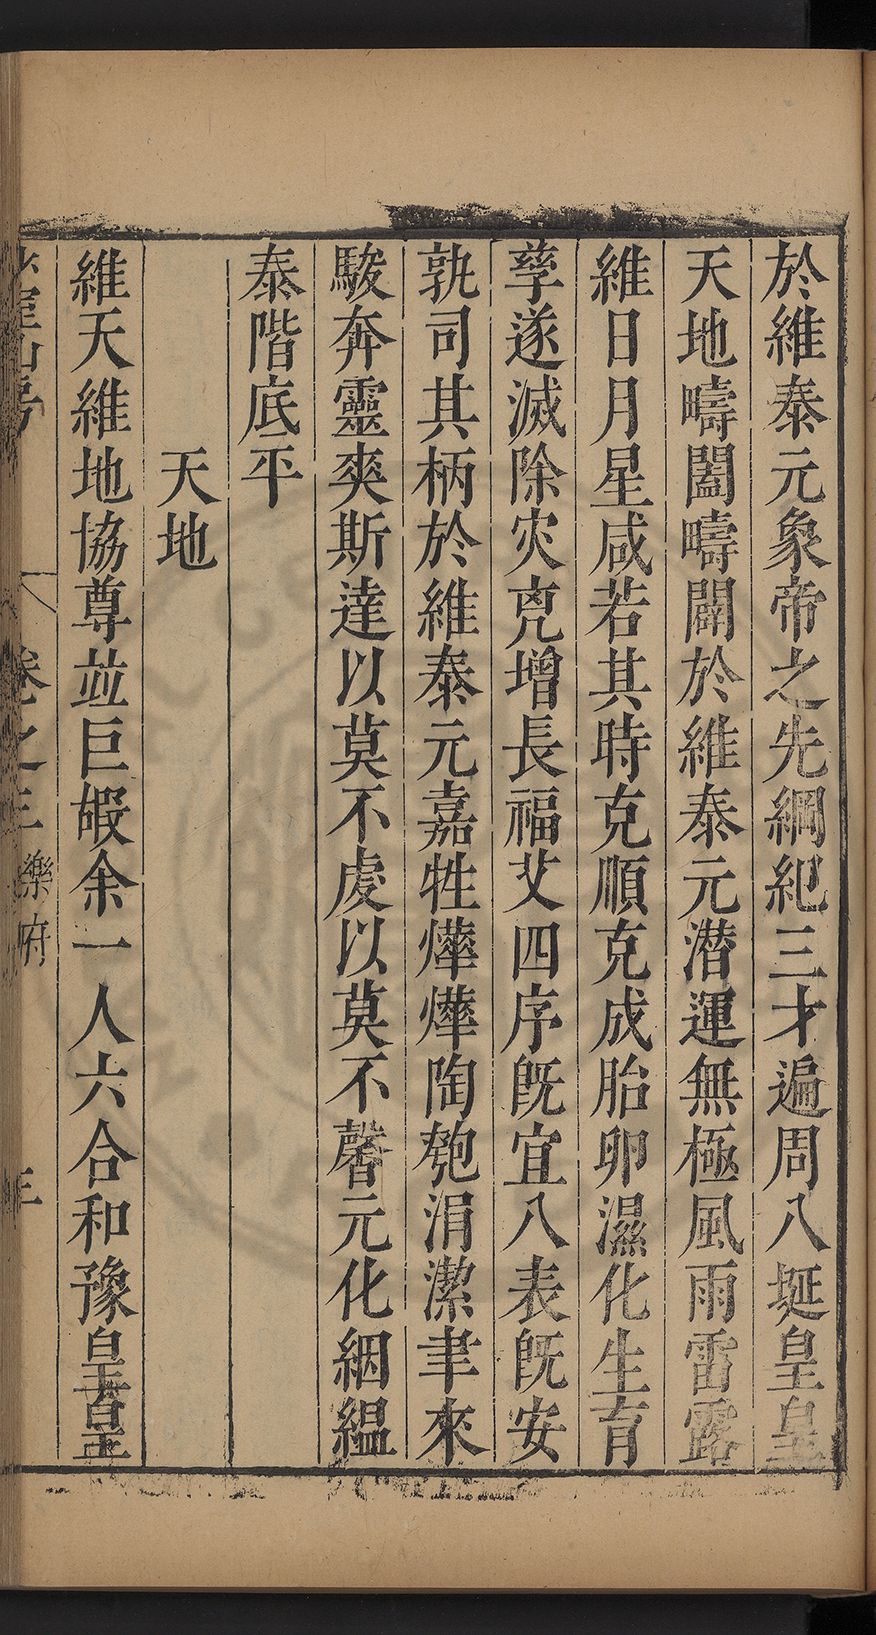 於維泰元象帝之先綱紀三才遍周八埏皇皇
天地疇闔疇闢於維泰元潛運無極風雨雷露
維日月星咸若其時克順克成胎卵濕化生育
孳遂滅除灾兇增長福艾四序旣宜八表旣安
孰司其柄於維泰元嘉牲燁燁陶匏涓潔聿來
駿奔靈爽斯達以莫不虔以莫不馨元化絪縕
泰階底平
天地
維天維地協尊並巨嘏余一人六合和豫皇皇
室山房
卷之三
樂府
三